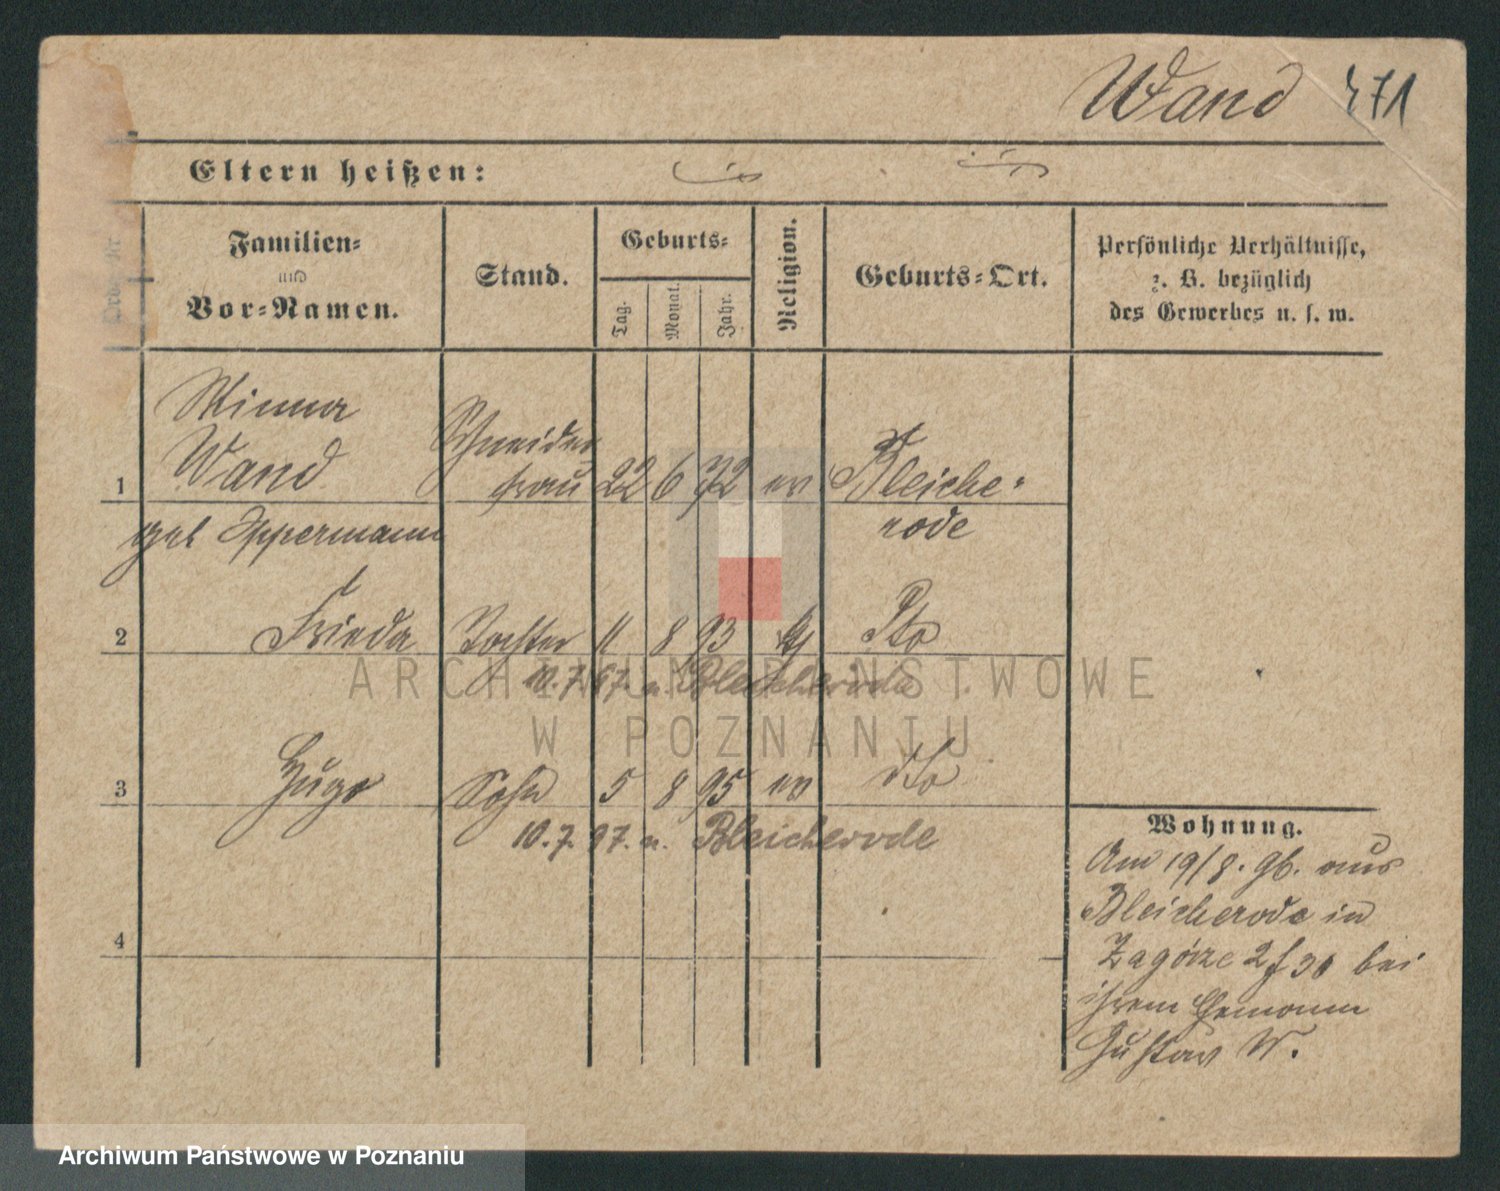 Wand 471
Eltern heißen:
Ord. Nr.
Familien=
und
Vor=Namen.
Stand.
Geburts=
Tag.
Monat.
Jahr.
Religion.
Geburts=Ort.
Persönliche Verhältnisse,
z. B. bezüglich
des Gewerbes u. s. w.
Minna
Wand
Schneider
frau
1
22 6 72 ev Bleiche=
rode
geb Oppermann
2 Frieda Tochter 11 8 93 Dto
10. 7. 97. n. Bleicherode
3 Hugo Sohn 5 8 95 ev dto
10. 7. 97. n. Bleicherode
4
Wohnung.
Am 19/8. 96. aus
Bleicherode in
Zagórze 2 bei
ihrem Ehemann
Gustav W.
ARCHIWUM PAŃSTWOWE
W POZNANIU
Archiwum Państwowe w Poznaniu